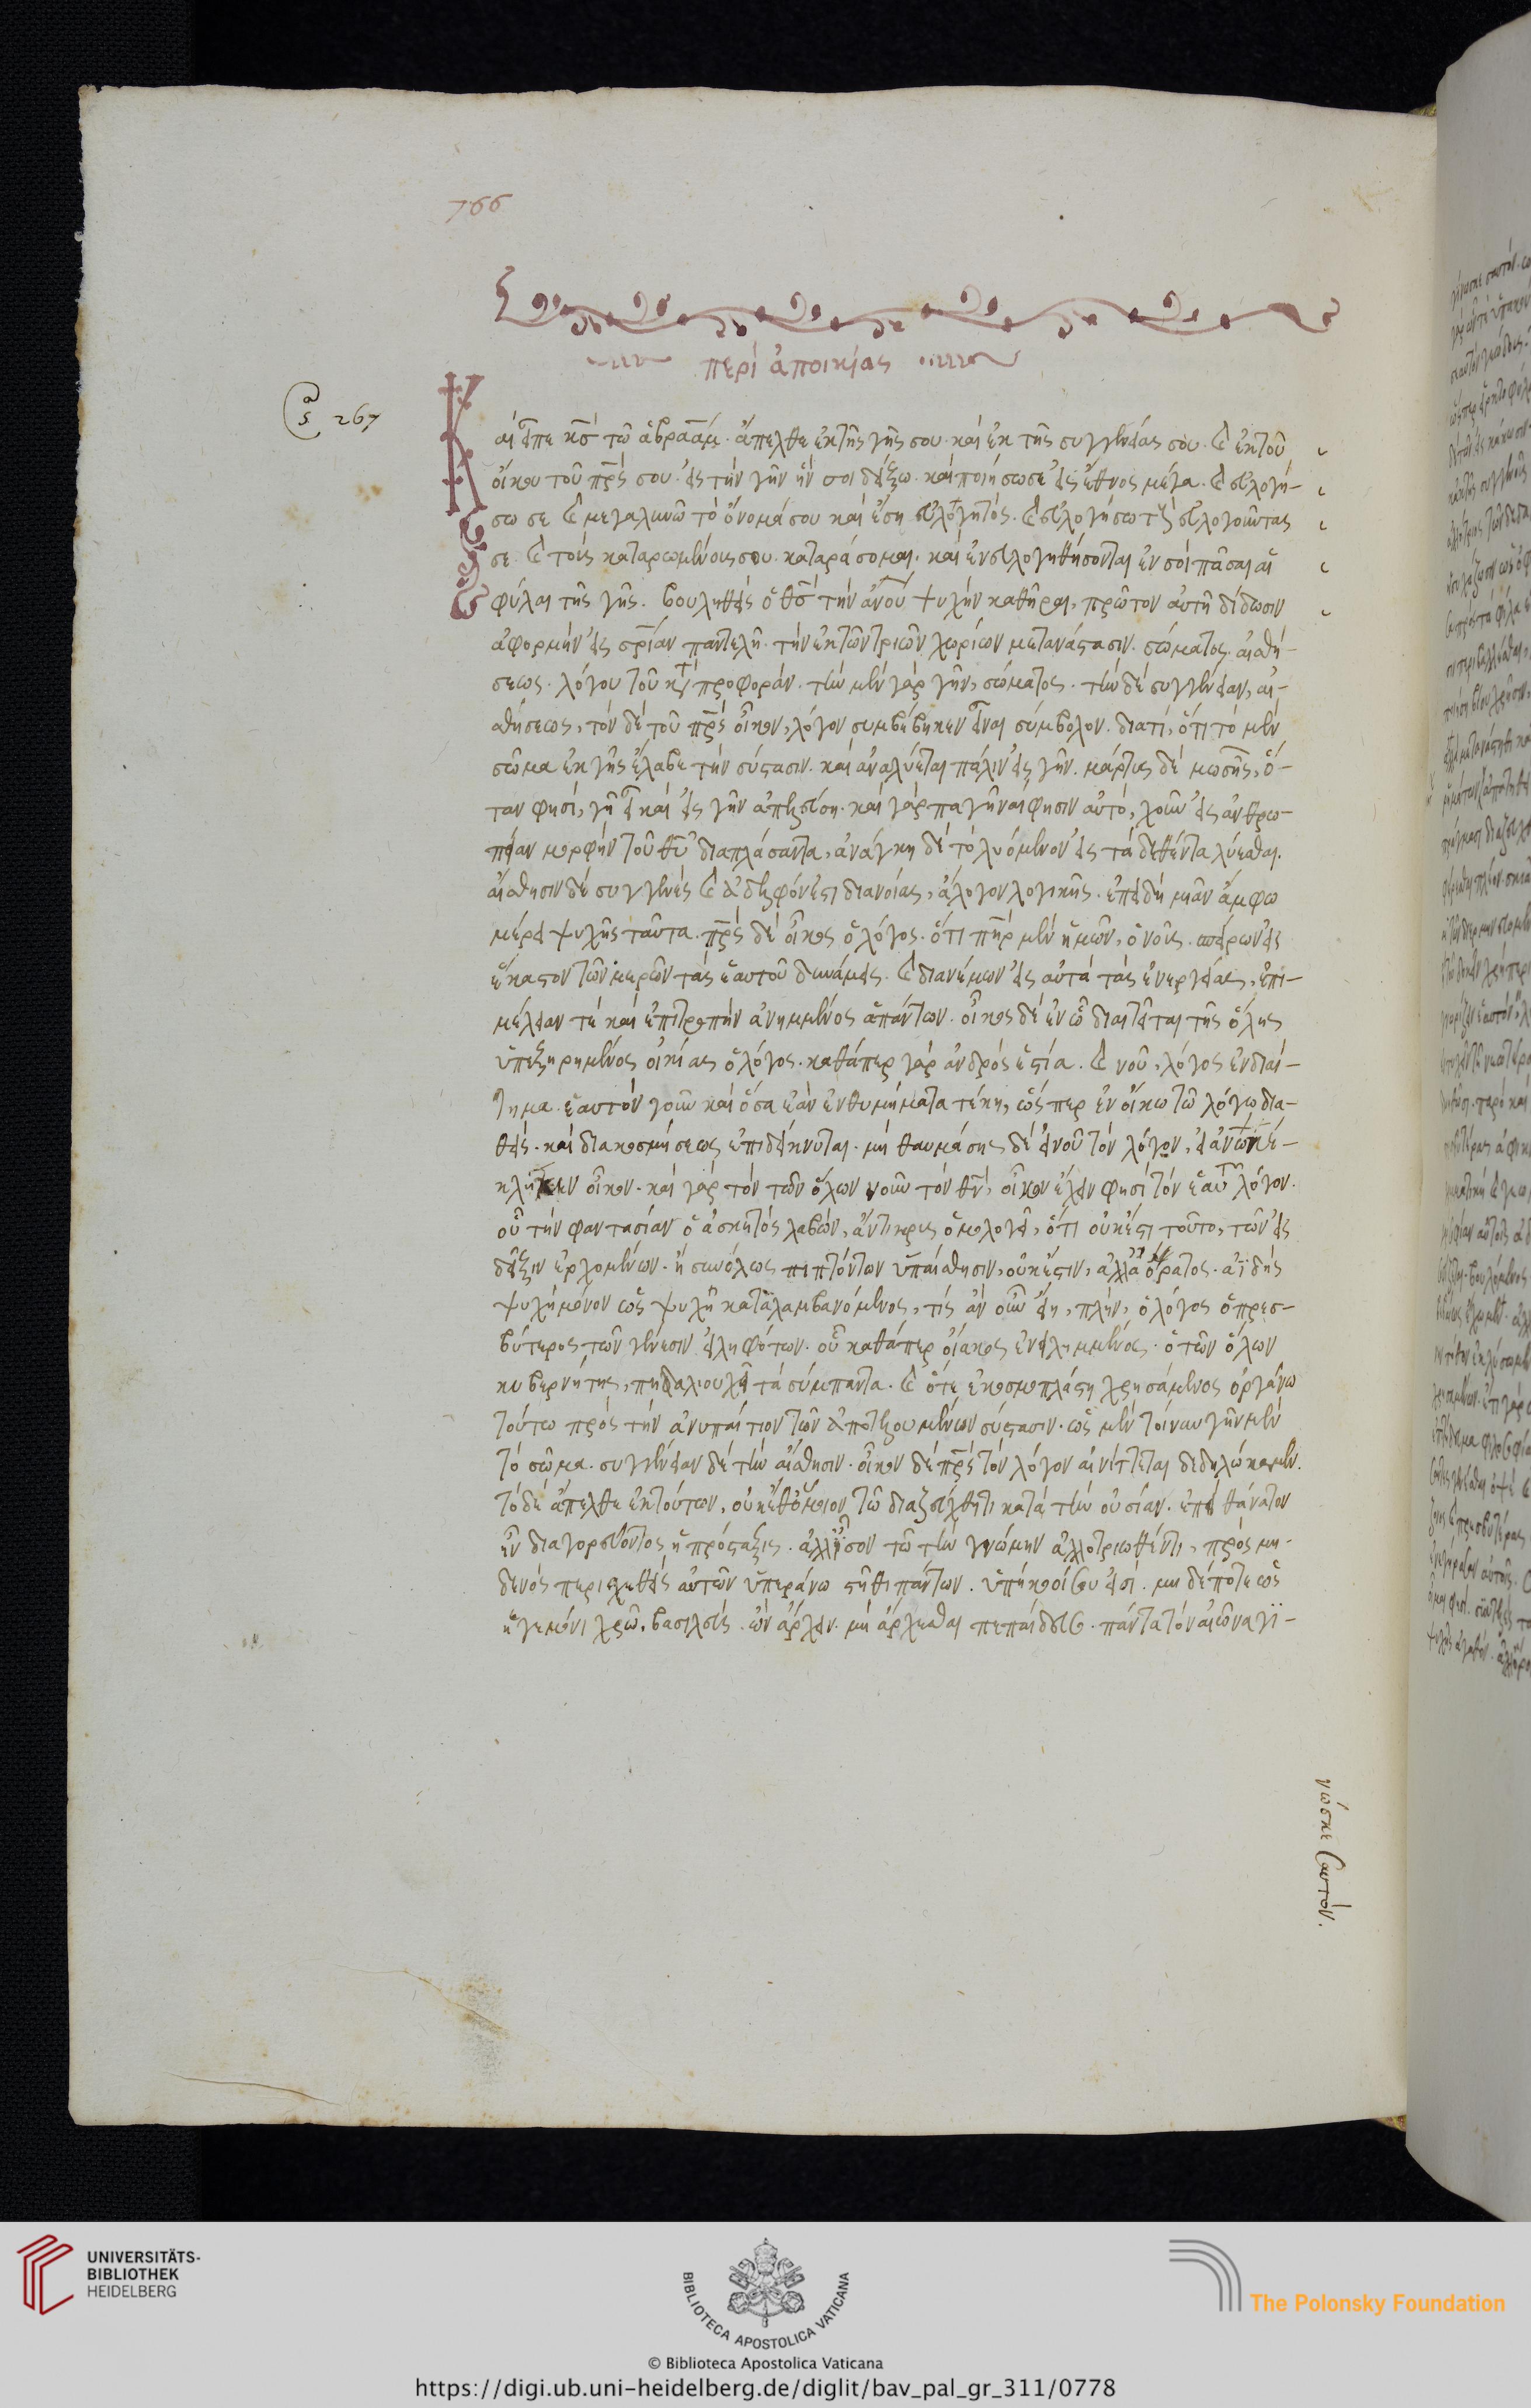 766
περὶ ἀποικίας
267
Καὶ εἶπε κς τῶ ἀβραάμ. ἄπελθε ἐκ τῆς γῆς σου. καὶ ἐκ τῆς συγγενείας σου. καὶ ἐκ τοῦ
οἴκου τοῦ πρς σου. εἰς τὴν γῆν ἣν σοι δείξω. καὶ ποιήσω σε εἰς ἔθνος μέγα. καὶ εὐλογή-
σω σε καὶ μεγαλυνῶ τὸ ὄνομά σου καὶ ἔση εὐλογητός. καὶ εὐλογήσω τοὺς εὐλογοῦντας
σε. καὶ τοὺς καταρωμένους σου καταράσομαι. καὶ ἐνευλογηθήσονται ἐν σοὶ πᾶσαι αἱ
φύλαι τῆς γῆς. βουληθεὶς ὁ θς τὴν ἀνου ψυχὴν καθῆραι, πρῶτον αὐτῆ δίδωσιν
ἀφορμὴν εἰς σρίαν παντελῆ. τὴν ἐκ τῶν τριῶν χωρίων μετανάστασιν. σώματος. αἰσθή-
σεως. λόγου τοῦ κατὰ προφοράν. τὴν μὲν γὰρ γῆν, σώματος. τὴν δὲ συγγένειαν, αἰ-
σθήσεως, τὸν δὲ τοῦ πρς οἶκον, λόγον συμβέβηκεν εἶναι σύμβολον. διατί, ὅτι τὸ μὲν
σῶμα ἐκ γῆς ἔλαβε τὴν σύστασιν. καὶ ἀναλύεται πάλιν εἰς γῆν. μάρτυς δὲ μωσῆς, ὅ-
ταν φησί, γῆ εἶ καὶ εἰς γῆν ἀπελεύση. καὶ γὰρ παγῆναί φησιν αὐτό, χοῦν εἰς ἀνθρω-
πείαν μορφὴν τοῦ θυ διαπλάσαντα, ἀνάγκη δὲ τὸ λυόμενον εἰς τὰ δεθέντα λύεσθαι.
αἴσθησιν δὲ συγγενὲς καὶ ἀδελφόν ἐστι διανοίας, ἄλογον λογικῆς. ἐπειδὴ μιᾶν ἄμφω
μέρει ψυχῆς ταῦτα. πρς δὲ οἶκος ὁ λόγος. ὅτι πηρ μὲν ἡμῶν, ὁ νοῦς. σπείρων εἰς
ἕκαστον τῶν μερῶν τὰς ἑαυτοῦ δυνάμεις. καὶ διανέμων εἰς αὐτὰ τὰς ἐνεργείας, ἐπι-
μέλειαν τὲ καὶ ἐπιτροπὴν ἀνημμένος ἁπάντων. οἶκος δὲ ἐν ὧ διαιτᾶται τῆς ὅλης
ὑπεξηρημένος οἰκίας ὁ λόγος. καθάπερ γὰρ ἀνδρὸς ἑστία. καὶ νοῦ, λόγος ἐνδιαί-
τημα. ἑαυτὸν γοῦν καὶ ὅσα ἐὰν ἐνθυμήματα τέκη, ὥσπερ ἐν οἴκω τῶ λόγω δια-
θεὶς. καὶ διακοσμήσεως ἐπιδείκνυται. μὴ θαυμάσης δὲ εἰ νοῦ τὸν λόγον,
οἶκον. καὶ γὰρ τὸν τῶν ὅλων νοῦν τὸν θν, οἶκον ἔχειν φησὶ τὸν ἑαυτοῦ λόγον.
οὗ τὴν φαντασίαν ὁ ἀσκητὸς λαβών, ἄντικρυς ὁμολογεῖ, ὅτι οὐκ ἔστι τοῦτο, τῶν εἰς
δεῖξιν ἐρχομένων. ἢ συνόλως πιπτόντων ὑπ' αἴσθησιν, οὐκ ἔστιν, ἀλλὰ ἀόρατος. ἀϊδὴς
ψυχὴ μόνον ὡς ψυχῆ καταλαμβανόμενος, τίς ἂν οὖν εἴη, πλὴν, ὁ λόγος ὁ πρεσ-
βύτερος τῶν γένεσιν εἰληφότων. οὗ καθάπερ οἴακος ἐνειλημμένος. ὁ τῶν ὅλων
κυβερνήτης, πηδαλιουχεῖ τὰ σύμπαντα. καὶ ὅτε ἐκοσμοπλάστη χρησάμενος ὀργάνω
τούτω πρὸς τὴν ἀνυπαίτιον τῶν ἀποτελουμένων σύστασιν. ὡς μὲν τοίνυν γῆν μὲν
τὸ σῶμα. συγγένειαν δὲ τὴν αἴσθησιν. οἶκον δὲ πρς τὸν λόγον αἰνίττεται δεδηλώκαμεν.
τὸ δὲ ἄπελθε ἐκ τούτων, οὐκ ἔσθ' ὅμοιον τῶ διαζεύχθητι κατὰ τὴν οὐσίαν. ἐπεὶ θάνατον
ἦν διαγορεύοντος ἡ πρόσταξις. ἀλλ' ἴσον τῶ τὴν γνώμην ἀλλοτριώθητι, πρὸς μη-
δενὸς περισχεθεὶς αὐτῶν ὑπεράνω στῆθι πάντων. ὑπήκοοί σου εἰσί. μηδέποτε ὡς
ἡγεμόνι χρῶ, βασιλεύς. ὢν ἄρχειν. μὴ ἄρχεσθαι πεπαίδευσο. πάντα τὸν αἰῶνα γί-
νωσκε σαυτόν.
UNIVERSITÄTS-
BIBLIOTHEK
HEIDELBERG
BIBLIOTECA APOSTOLICA VATICANA
The Polonsky Foundation
© Biblioteca Apostolica Vaticana
https://digi.ub.uni-heidelberg.de/diglit/bav_pal_gr_311/0778